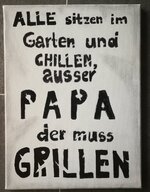 ALLE sitzen im
Garten und
CHILLEN,
ausser
PAPA
der muss
GRILLEN